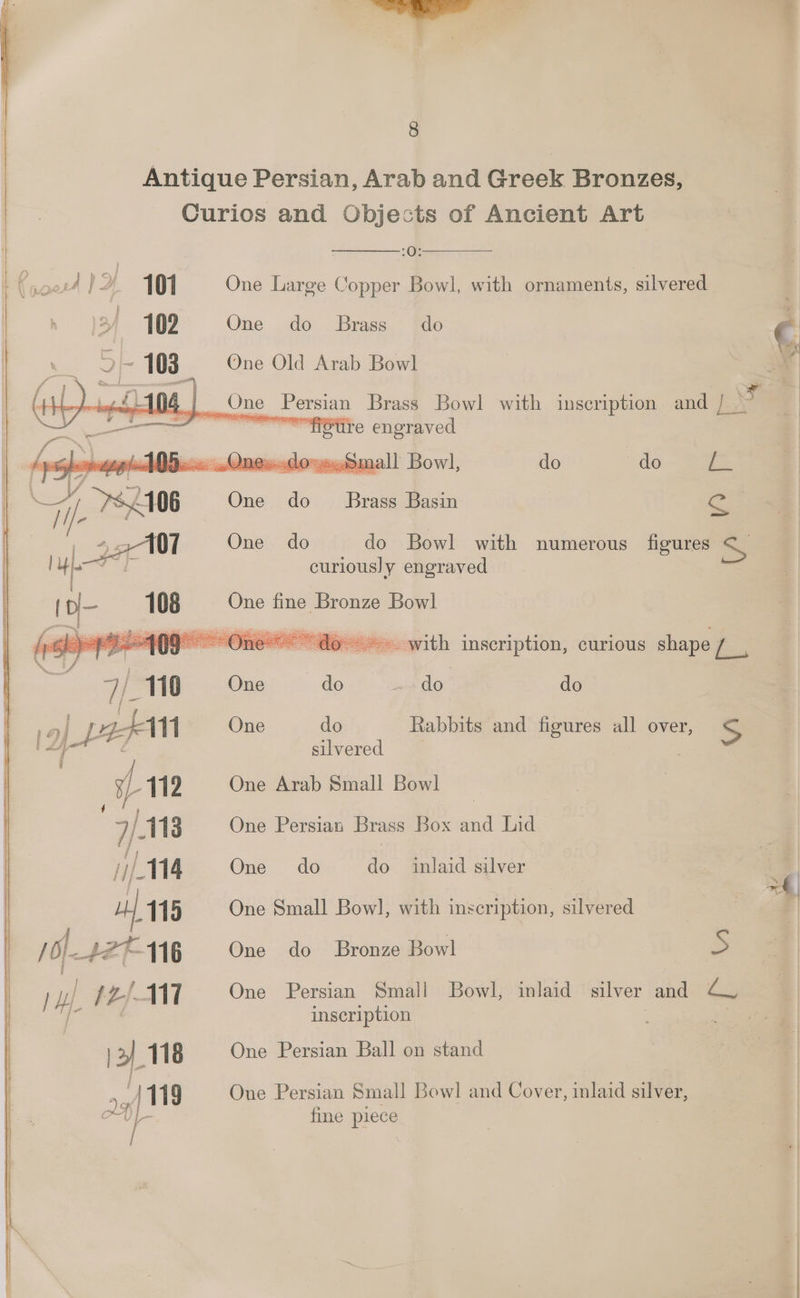 8
Antique Persian, Arab and Greek Bronzes,
Curios and Objects of Ancient Art
:O:
12/ 101 One Large Copper Bowl, with ornaments, silvered
12/ 102 One do Brass do
5/- 103 One Old Arab Bowl
104 One Persian Brass Bowl with inscription and
figure engraved
105 One do Small Bowl, do do L
11/- 106 One do Brass Basin S
14/- 107 One do do Bowl with numerous figures S
curiously engraved
10/- 108 One fine Bronze Bowl
109 One do with inscription, curious shape L
7/- 110 One do do do
12/- 111 One do Rabbits and figures all over, S
silvered
8/- 112 One Arab Small Bowl
7/- 113 One Persian Brass Box and Lid
11/- 114 One do do inlaid silver
4/- 115 One Small Bowl, with inscription, silvered
16/- 116 One do Bronze Bowl S
14/- 12/- 117 One Persian Small Bowl, inlaid silver and L
inscription
12/- 118 One Persian Ball on stand
29/- 119 One Persian Small Bowl and Cover, inlaid silver,
fine piece